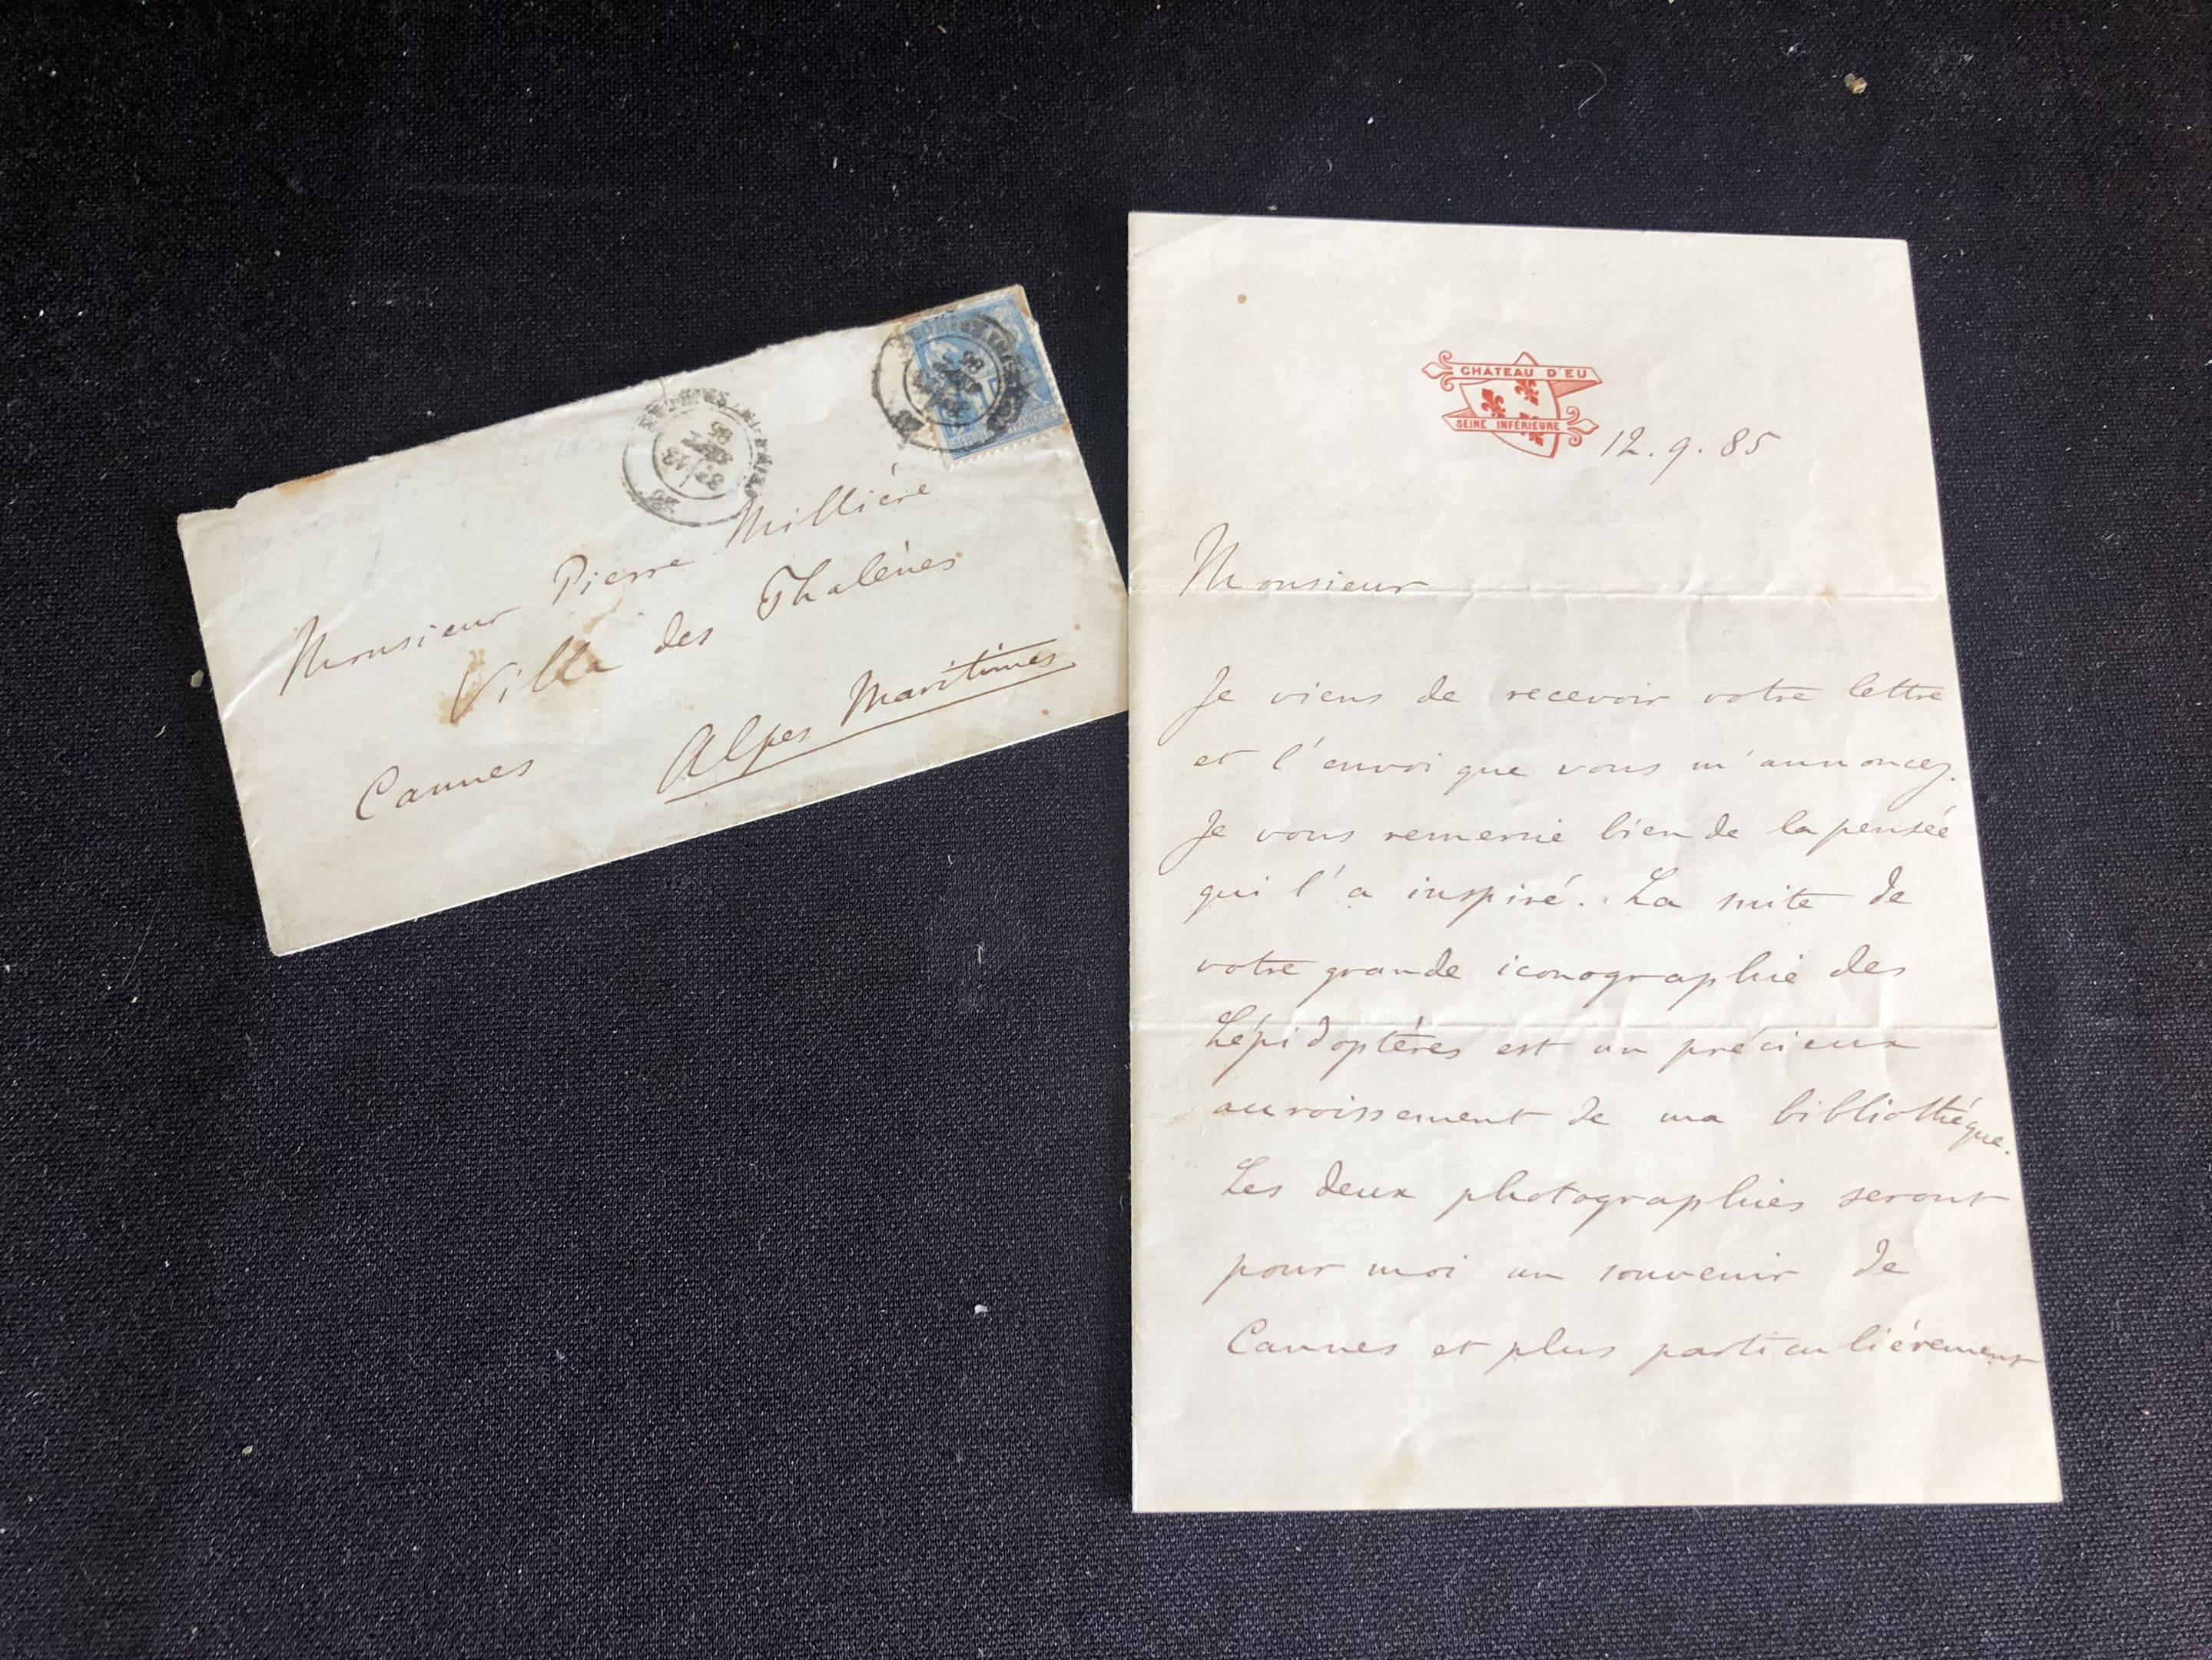 Monsieur Pierre Millière
Villa des Phalènes
Cannes Alpes Maritimes
85
85
CHATEAU D'EU
SEINE INFÉRIEURE
12.9.85
Monsieur
Je viens de recevoir votre lettre
et l'envoi que vous m'annoncez.
Je vous remercie bien de la pensée
qui l'a inspiré. La suite de
votre grande iconographie des
Lépidoptères est un précieux
accroissement de ma bibliothèque.
Les deux photographies seront
pour moi un souvenir de
Cannes et plus particulièrement